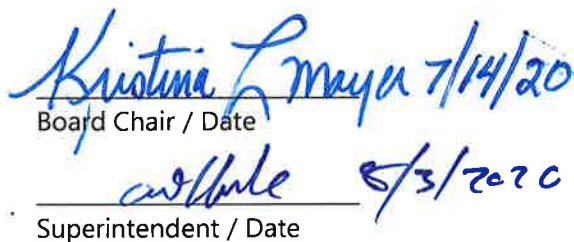 Kristina L Mayer 7/14/20
Board Chair / Date
8/3/2020
Superintendent / Date